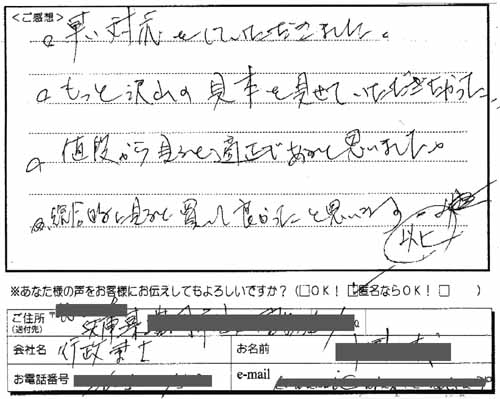 ＜ご感想＞
○早い対応をしていただきました。
○もっと沢山の見本を見せていただきたかった
○値段から見ると適正であるかと思いました。
○総合的に見ると買って良かったと思います
以上
※あなた様の声をお客様にお伝えしてもよろしいですか？（□OK！ □匿名ならOK！ □ ）
ご住所 〒
(送付先) 兵庫県
会社名 行政書士 お名前
お電話番号 e-mail